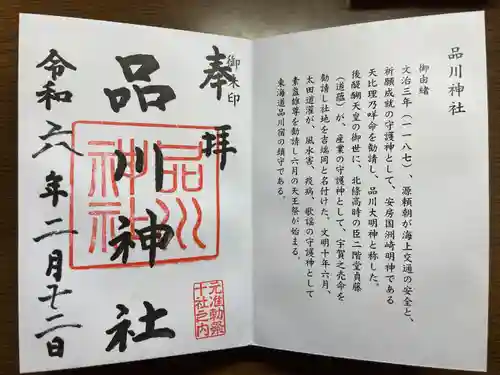 品川神社
御由緒
文治三年（一一八七）、源頼朝が海上交通の安全と、
祈願成就の守護神として、安房国洲崎明神である
天比理乃咩命を勧請し、品川大明神と称した。
後醍醐天皇の御世に、北條高時の臣二階堂貞藤
（道蘊）が、産業の守護神として、宇賀之売命を
勧請し社地を吉端岡と名付けた。文明十年六月、
太田道灌が、風水害、疫病、歌謡の守護神として
素盞雄尊を勧請し六月の天王祭が始まる。
東海道品川宿の鎮守である。
御朱印
奉拝
品川神社
品川神社
元准勅祭
十社之内
令和六年二月廿二日